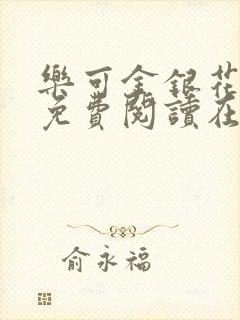 樂可金銀花
免費閱讀在
俞永福